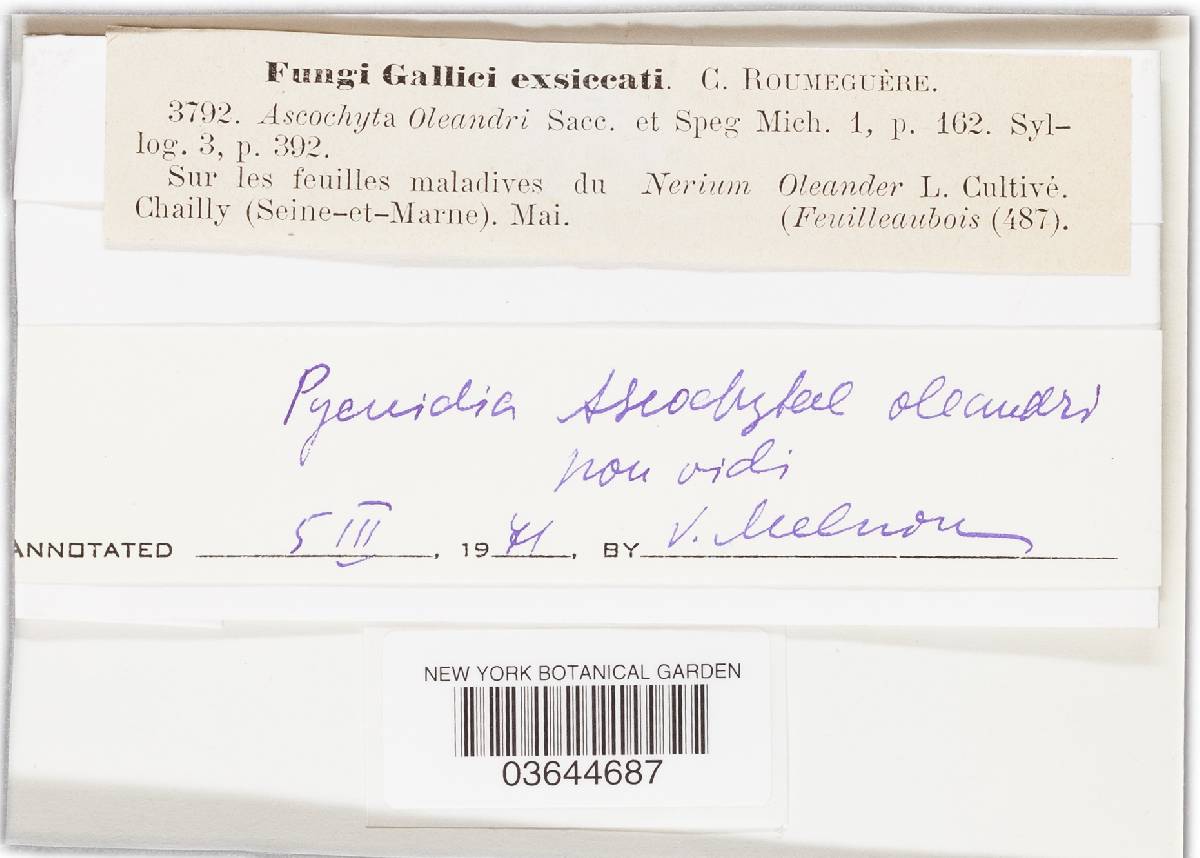 Fungi Gallici exsiccati. C. ROUMEGUÈRE.
3792. Ascochyta Oleandri Sacc. et Speg Mich. 1, p. 162. Syl-
log. 3, p. 392.
Sur les feuilles maladives du Nerium Oleander L. Cultivé.
Chailly (Seine-et-Marne). Mai. (Feuilleaubois (487).
Pycnidia Ascochytae oleandri
non vidi
ANNOTATED 5 III, 1971, BY V. Melnik
NEW YORK BOTANICAL GARDEN
03644687